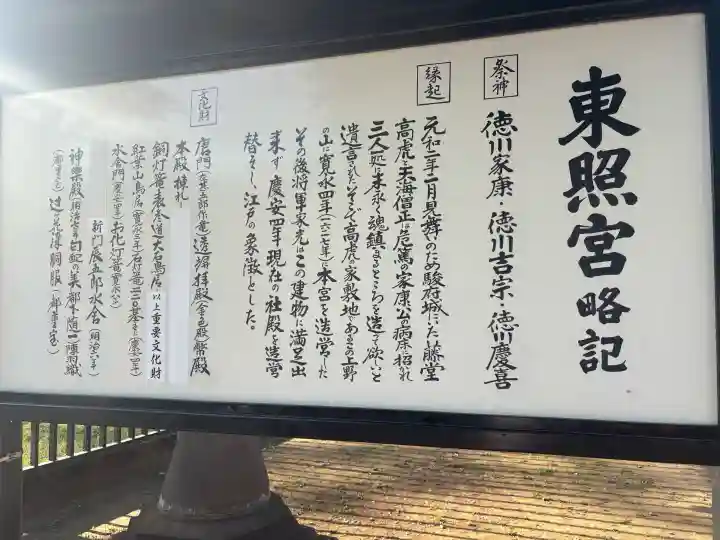 東照宮略記
祭神
徳川家康・徳川吉宗・徳川慶喜
縁起
元和二年二月見舞いのため駿府城にいた藤堂
高虎と天海僧正は危篤の家康公の病床に招かれ
三人一処に末永く魂鎮まるところを造って欲いと
遺言された。そこで高虎の家敷地であるこの上野
の山に寛永四年(一六二七年)本宮を造営した
その後将軍家光はこの建物に満足出
来ず慶安四年現在の社殿を造営
替えし、江戸の象徴とした。
文化財
唐門(左甚五郎作竜)透塀拝殿(金色殿)幣殿
本殿棟札
銅灯篭表参道大石鳥居 以上重要文化財
紅葉山鳥居(寛永三年)石灯篭二二〇基(慶安四年)
水舎門(慶安四年)お化灯篭
新門辰五郎水舎(明治七年)
神楽殿(明治
胴服(都重宝)